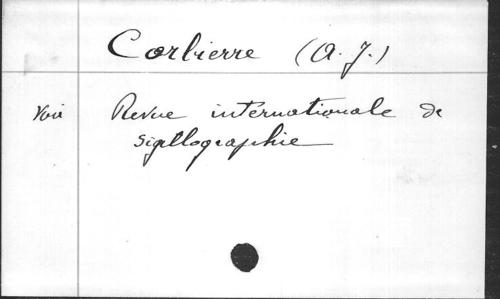 Corbierre (A. J.)
Voir Revue internationale de
sigillographie